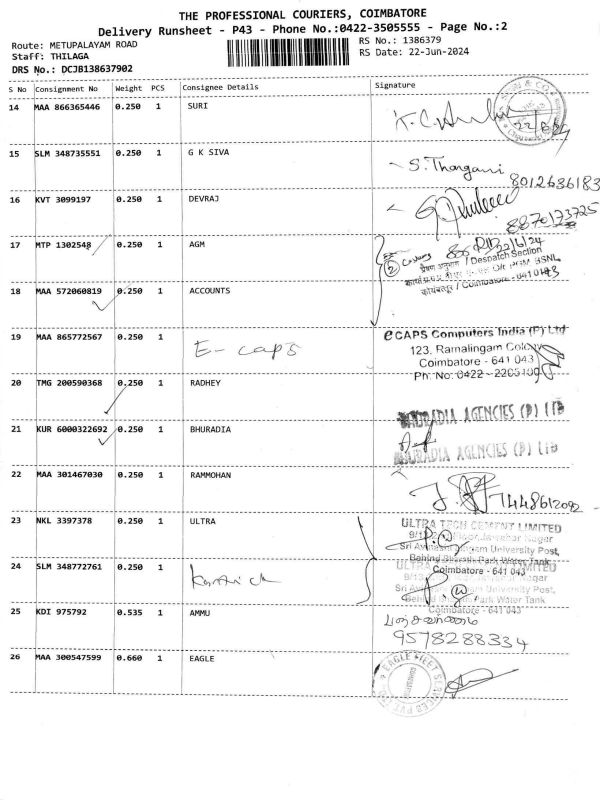 THE PROFESSIONAL COURIERS, COIMBATORE
Delivery Runsheet - P43 - Phone No.:0422-3505555 - Page No.:2
Route: METUPALAYAM ROAD
RS No.: 1386379
Staff: THILAGA
RS Date: 22-Jun-2024
DRS No.: DCJB138637902
S No Consignment No Weight PCS Consignee Details Signature
14 MAA 866365446 0.250 1 SURI
22/6/24
15 SLM 348735551 0.250 1 G K SIVA
S. Thangani
8012636183
16 KVT 3099197 0.250 1 DEVRAJ
8870173725
17 MTP 1302548 0.250 1 AGM
22/6/24
/ Despatch Section
BSNL
18 MAA 572060819 0.250 1 ACCOUNTS
कोयंबत्तूर / Coimbatore
19 MAA 865772567 0.250 1
E- caps
eCAPS Computers India (P) Ltd
123, Ramalingam Colony
Coimbatore - 641 043
Ph. No: 0422 -
20 TMG 200590368 0.250 1 RADHEY
BHURADIA AGENCIES (P) LTD
21 KUR 6000322692 0.250 1 BHURADIA
BHURADIA AGENCIES (P) LTD
22 MAA 301467030 0.250 1 RAMMOHAN
7448612092
23 NKL 3397378 0.250 1 ULTRA
ULTRA TECH CEMENT LIMITED
Sri Avinashilingam University Post,
Behind Bharathi Park Water Tank
Coimbatore - 641 043
24 SLM 348772761 0.250 1
Karthick
University Post,
Park Water Tank
Coimbatore - 641 043
25 KDI 975792 0.535 1 AMMU
9578288334
26 MAA 300547599 0.660 1 EAGLE
EAGLE FLEET SERVICES PVT. LTD